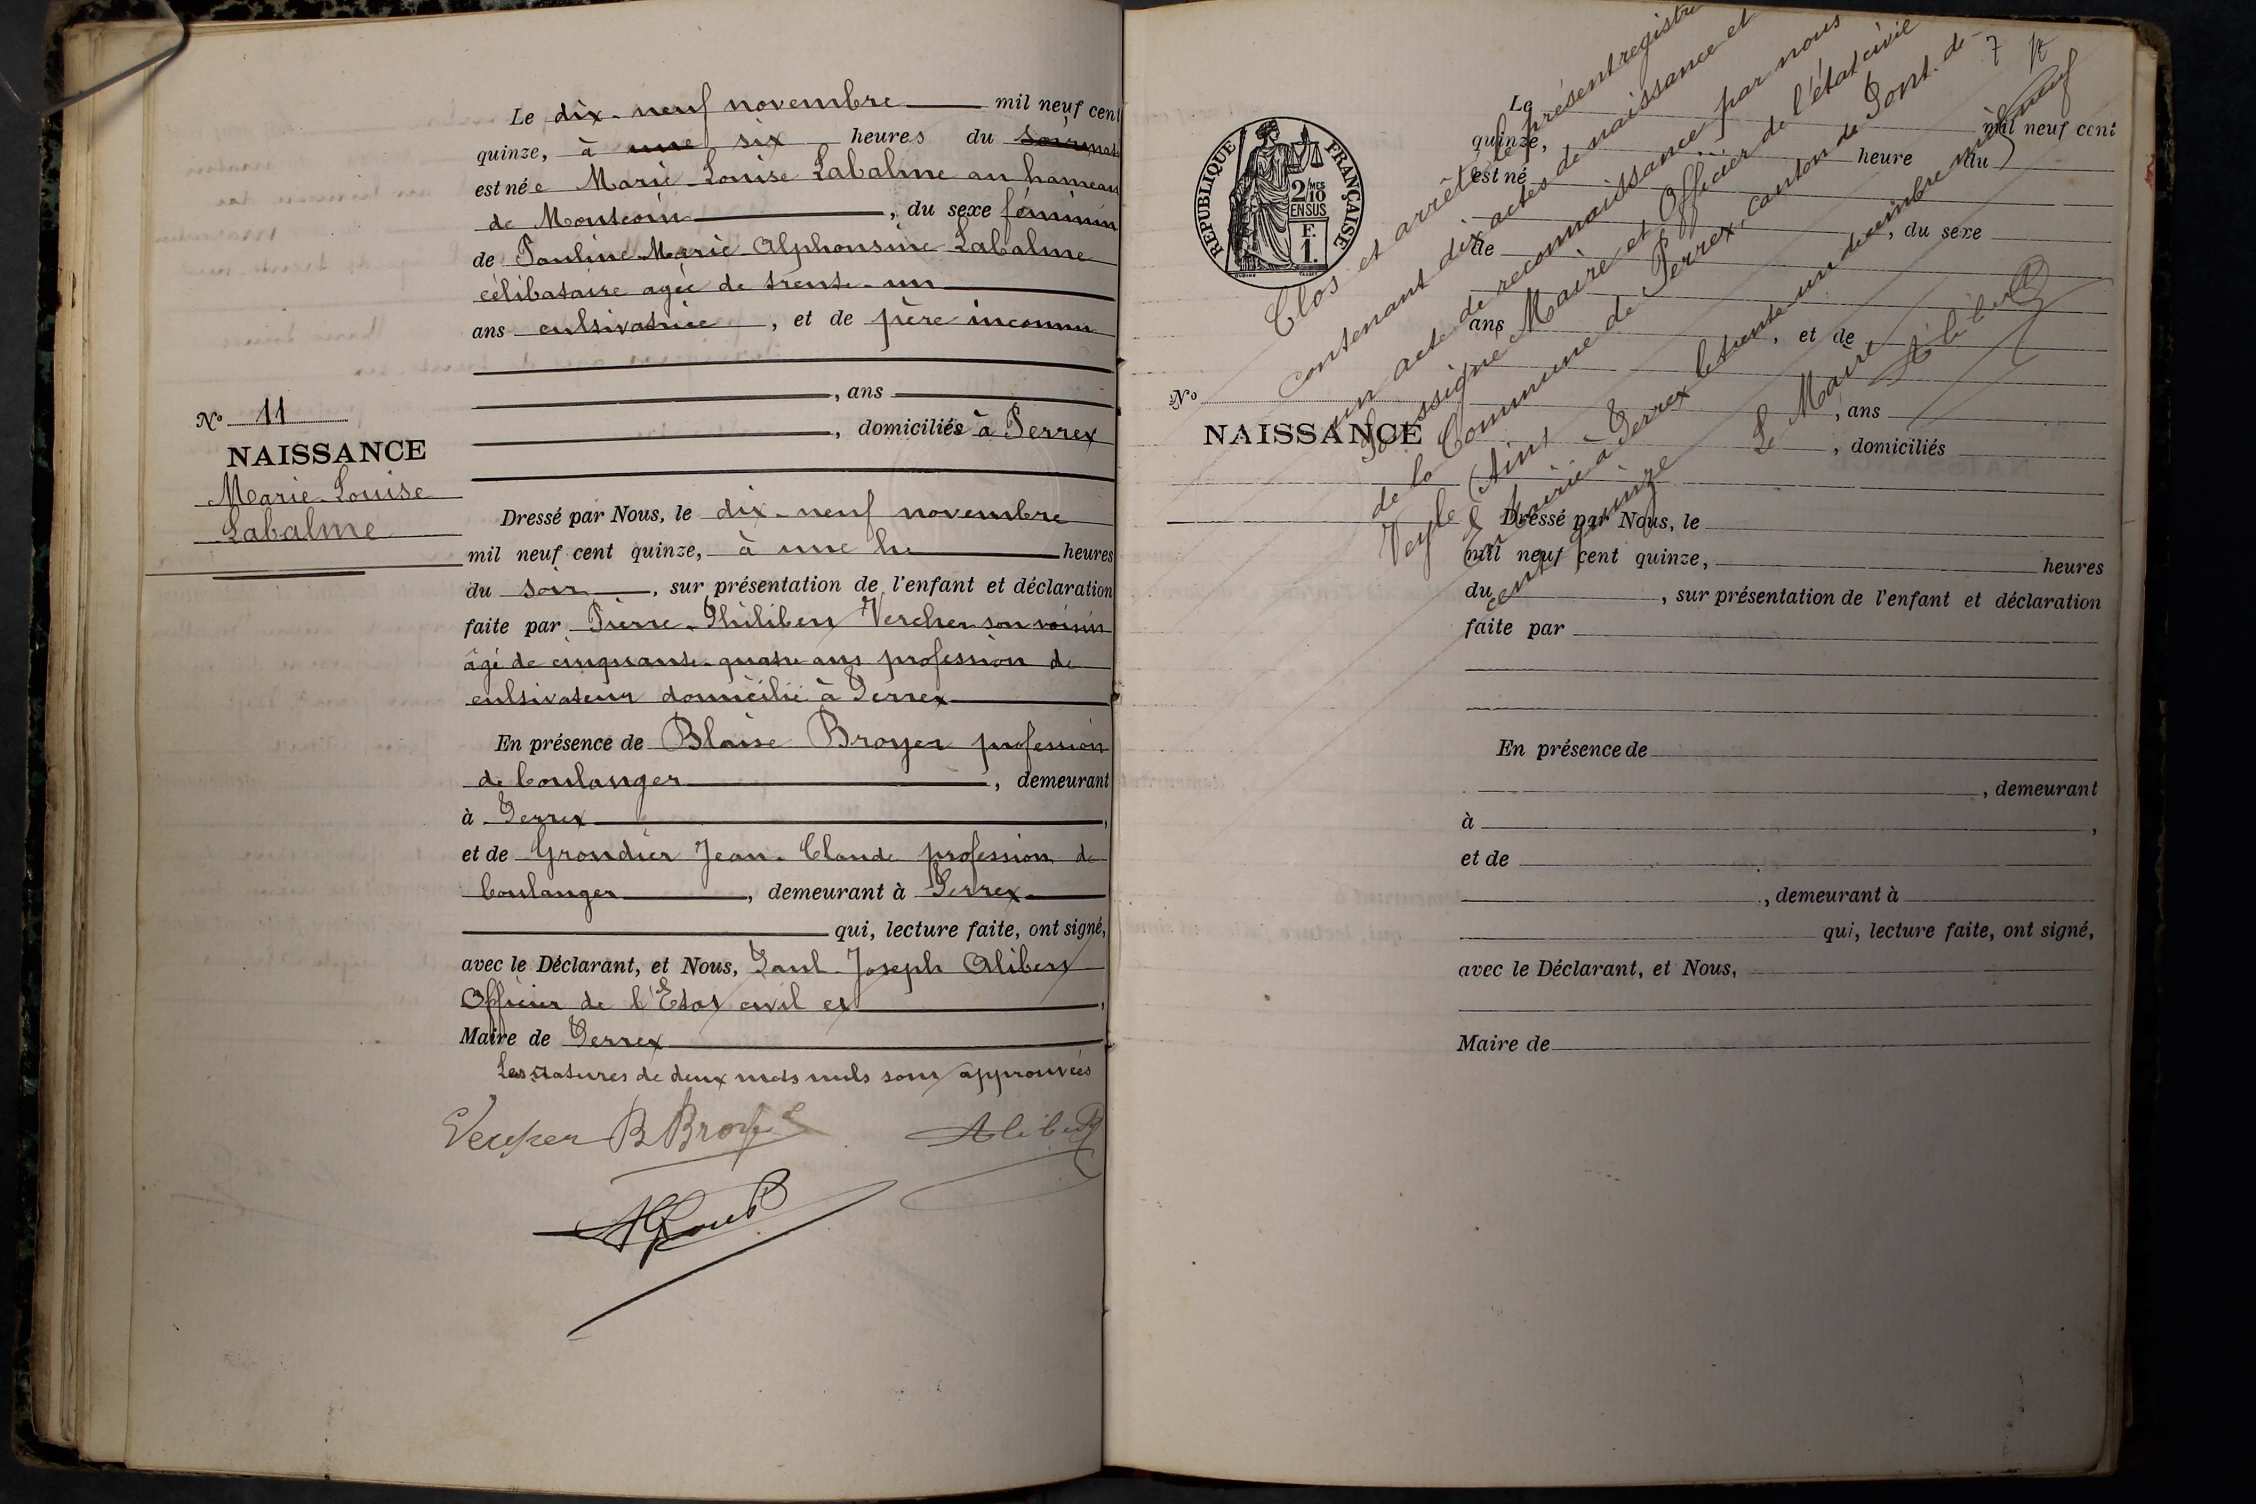 Le dix-neuf novembre mil neuf cent
quinze, à une six heures du soir mat
est née Marie-Louise Labalme au hameau
de Montcoin, du sexe féminin
de Pauline-Marie-Alphonsine Labalme
célibataire agée de trente-un
ans cultivatrice, et de père inconnu
, ans
, domiciliés à Perrex
No 11
NAISSANCE
Marie-Louise
Labalme
Dressé par Nous, le dix-neuf novembre
mil neuf cent quinze, à une h. heures
du soir, sur présentation de l'enfant et déclaration
faite par Pierre-Philibert Vercher son voisin
âgé de cinquante-quatre ans profession de
cultivateur domicilié à Perrex
En présence de Blaise Broyer profession
de boulanger, demeurant
à Perrex,
et de Grondier Jean-Claude profession de
boulanger, demeurant à Perrex
qui, lecture faite, ont signé,
avec le Déclarant, et Nous, Paul-Joseph Alibert
Officier de l'Etat civil et,
Maire de Perrex
Les ratures de deux mots nuls sont approuvées
Vercher B Broyer Alibert
7
REPUBLIQUE FRANÇAISE
2 MES
10
EN SUS
F.
1.
Clos et arrêté le présent registre
contenant dix actes de naissance et
un acte de reconnaissance par nous
Soussigné Maire et Officier de l'état civil
de la Commune de Perrex, canton de Pont-de-
Veyle (Ain)
En Mairie à Perrex le trente-un décembre mil neuf
cent quinze
Le Maire
Alibert
Le mil neuf cent
quinze, heure du
est né
, du sexe
de
ans, et de
No
, ans
NAISSANCE
, domiciliés
Dressé par Nous, le
mil neuf cent quinze, heures
du, sur présentation de l'enfant et déclaration
faite par
En présence de
, demeurant
à,
et de
, demeurant à
qui, lecture faite, ont signé,
avec le Déclarant, et Nous,
Maire de